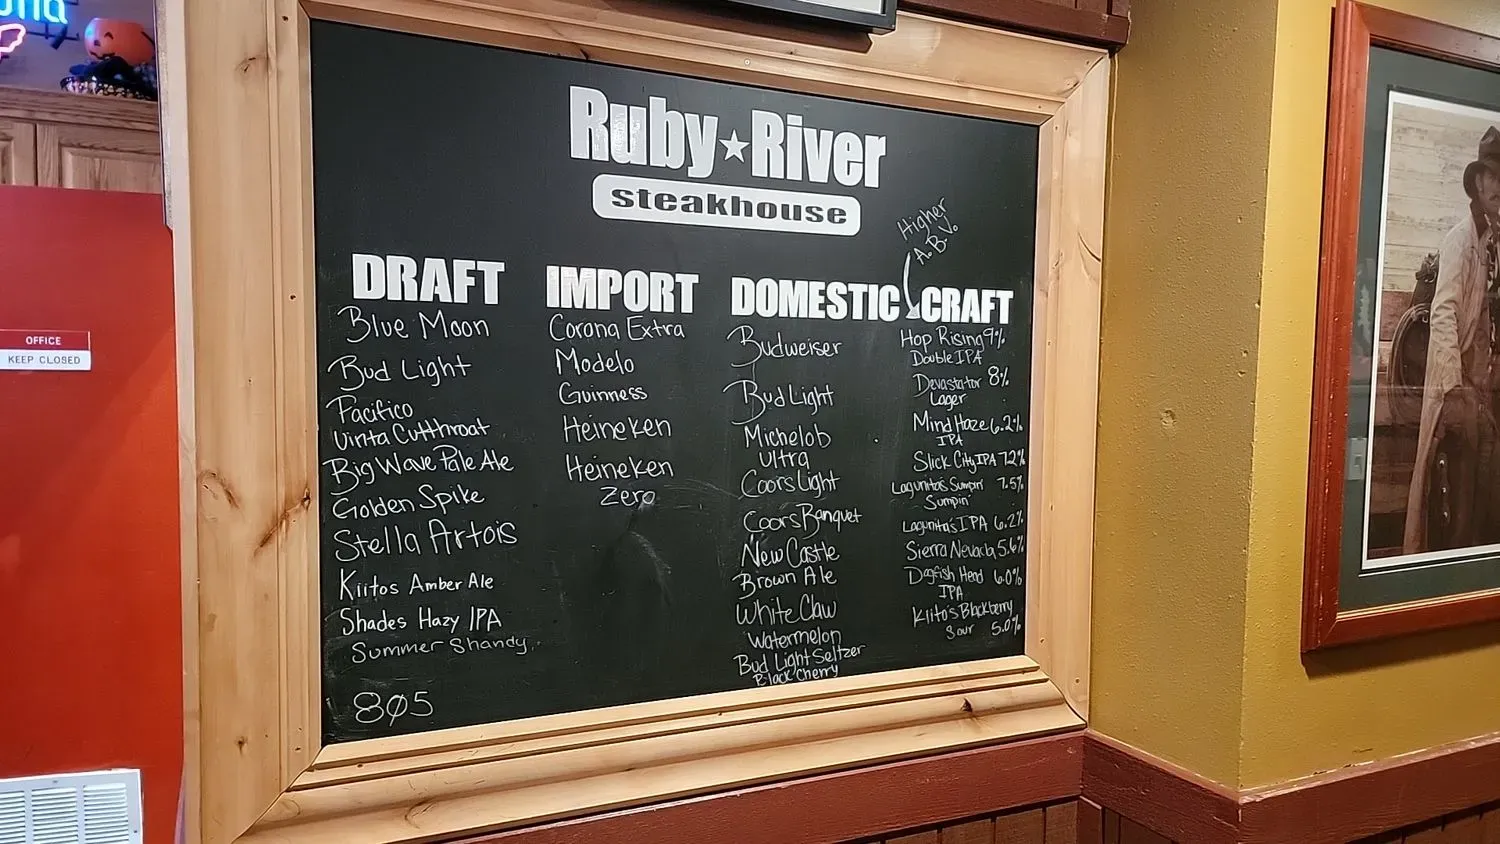 Ruby★River
steakhouse
Higher
A.B.V.
DRAFT
Blue Moon
Bud Light
Pacifico
Uinta Cutthroat
Big Wave Pale Ale
Golden Spike
Stella Artois
Kiitos Amber Ale
Shades Hazy IPA
Summer Shandy
805
IMPORT
Corona Extra
Modelo
Guinness
Heineken
Heineken
Zero
DOMESTIC
Budweiser
Bud Light
Michelob
Ultra
Coors Light
Coors Banquet
New Castle
Brown Ale
White Claw
Watermelon
Bud Light Seltzer
Black Cherry
CRAFT
Hop Rising 9%
Double IPA
Devastator 8%
Lager
Mind Haze 6.2%
IPA
Slick City IPA 7.2%
Lagunitas Sumpin' 7.5%
Sumpin'
Lagunita's IPA 6.2%
Sierra Nevada 5.6%
Dogfish Head 6.0%
IPA
Kiito's Blackberry
Sour 5.0%
OFFICE
KEEP CLOSED